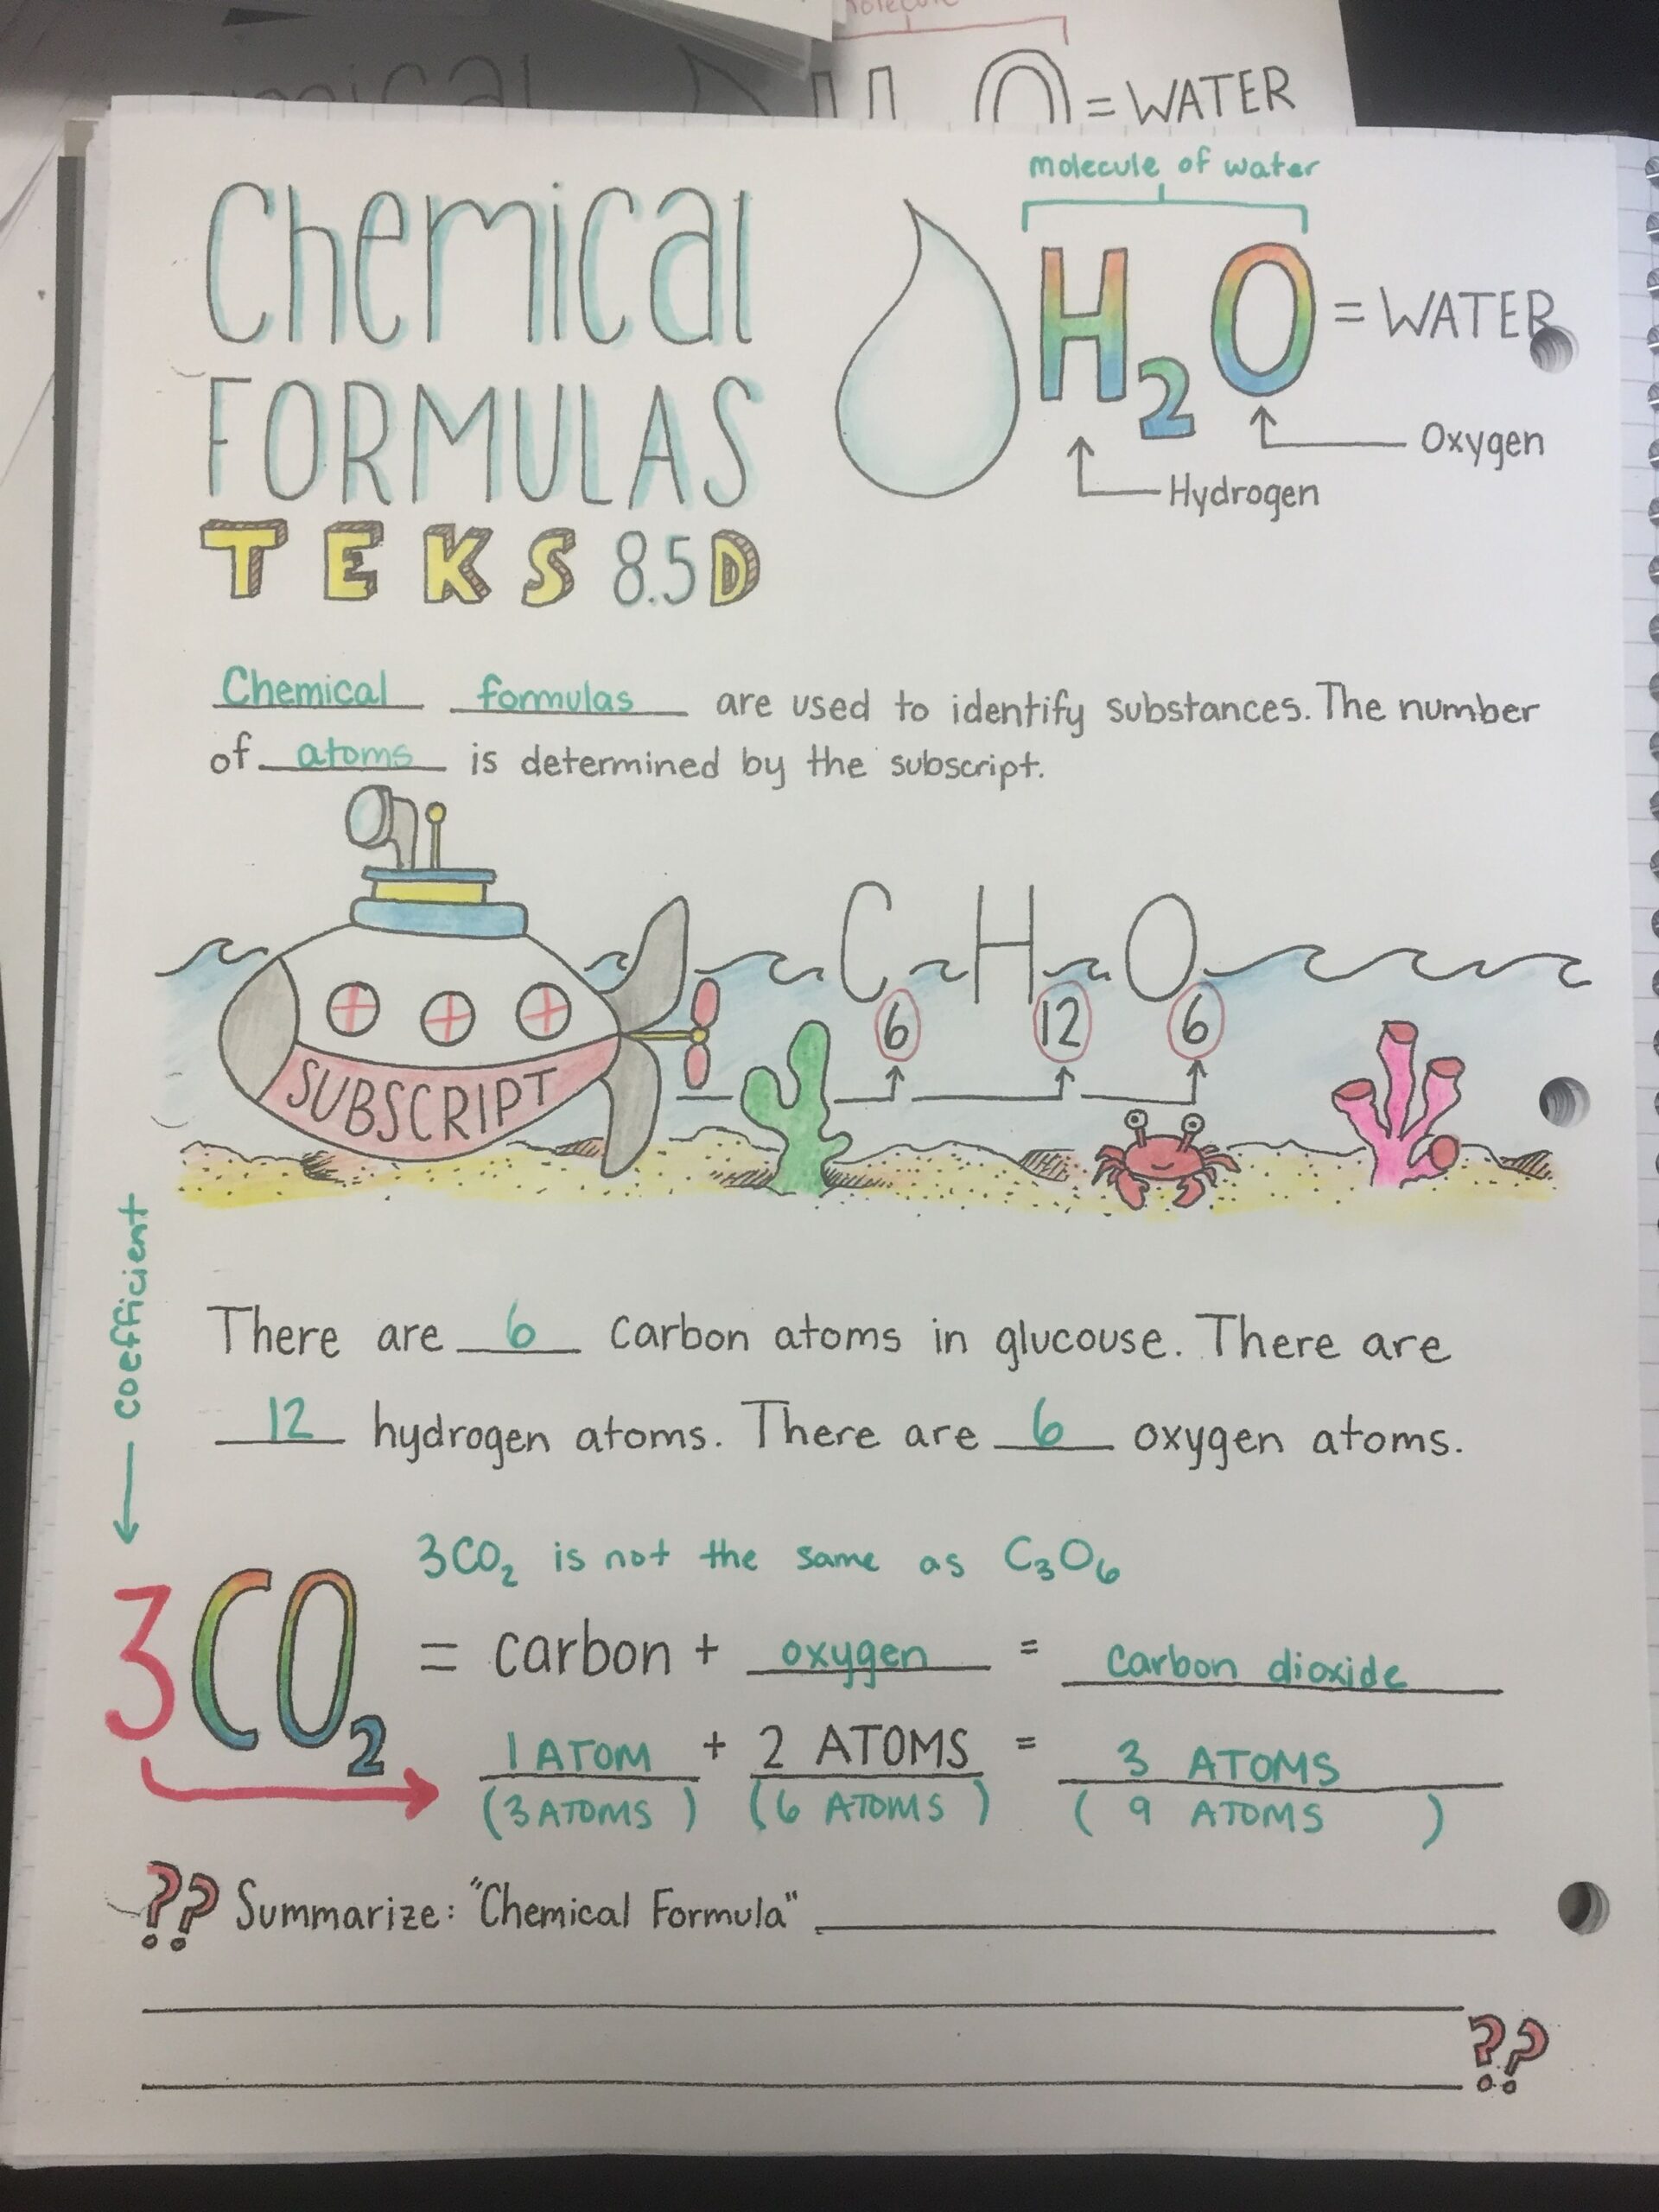 molecule
= WATER
molecule of water
Chemical
FORMULAS
TEKS 8.5D
H₂O = WATER
Oxygen
Hydrogen
Chemical formulas are used to identify substances. The number
of atoms is determined by the subscript.
C₆H₁₂O₆
SUBSCRIPT
coefficient
There are 6 carbon atoms in glucouse. There are
12 hydrogen atoms. There are 6 oxygen atoms.
3CO₂ is not the same as C₃O₆
3CO₂ = carbon + oxygen = carbon dioxide
1 ATOM + 2 ATOMS = 3 ATOMS
(3 ATOMS) (6 ATOMS) (9 ATOMS)
?? Summarize: "Chemical Formula"
??